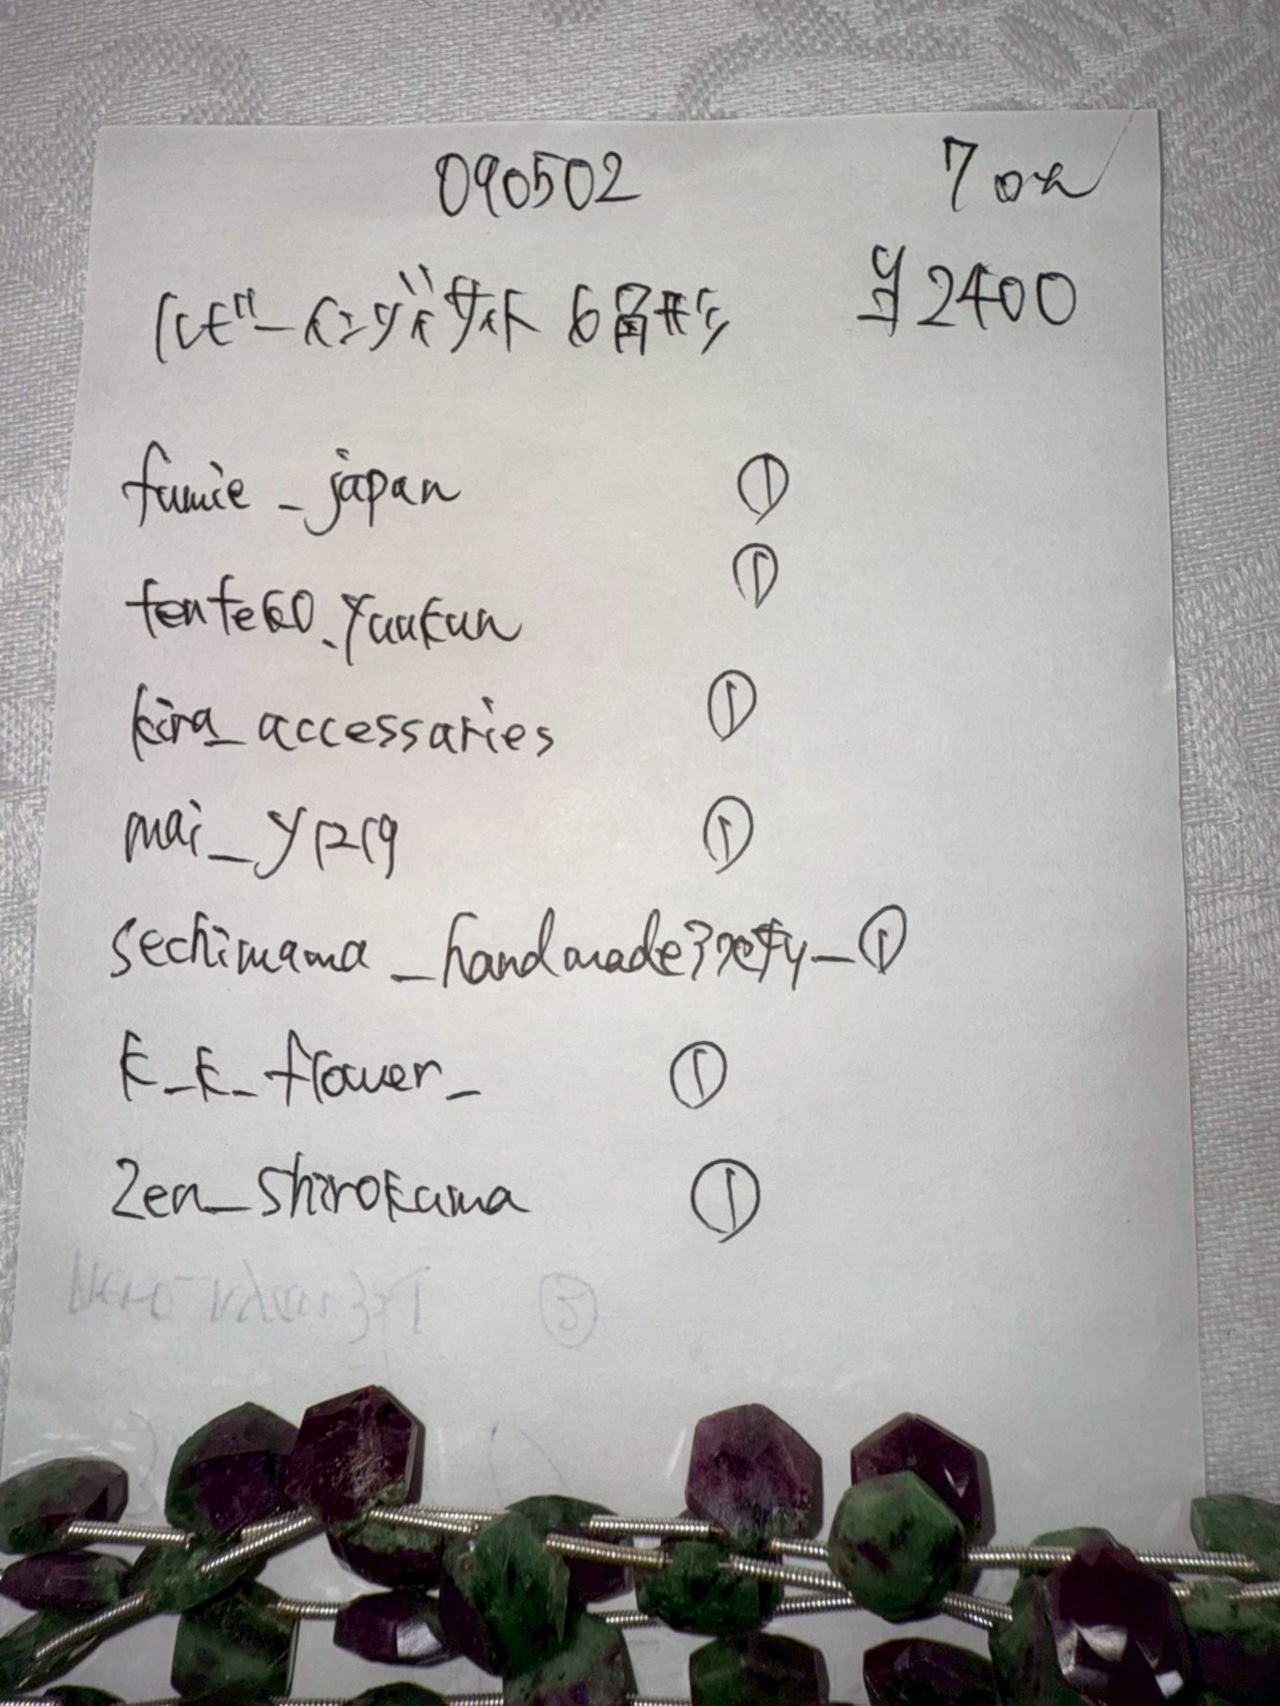 090502
ルビーインゾイサイト 6角形 ¥2400
fumie_japan ①
tenteko.yuukun ①
kira_accessaries ①
mai_y1219 ①
sechimama_handmade ①
k_k_flower_ ①
zen_shirokuma ①